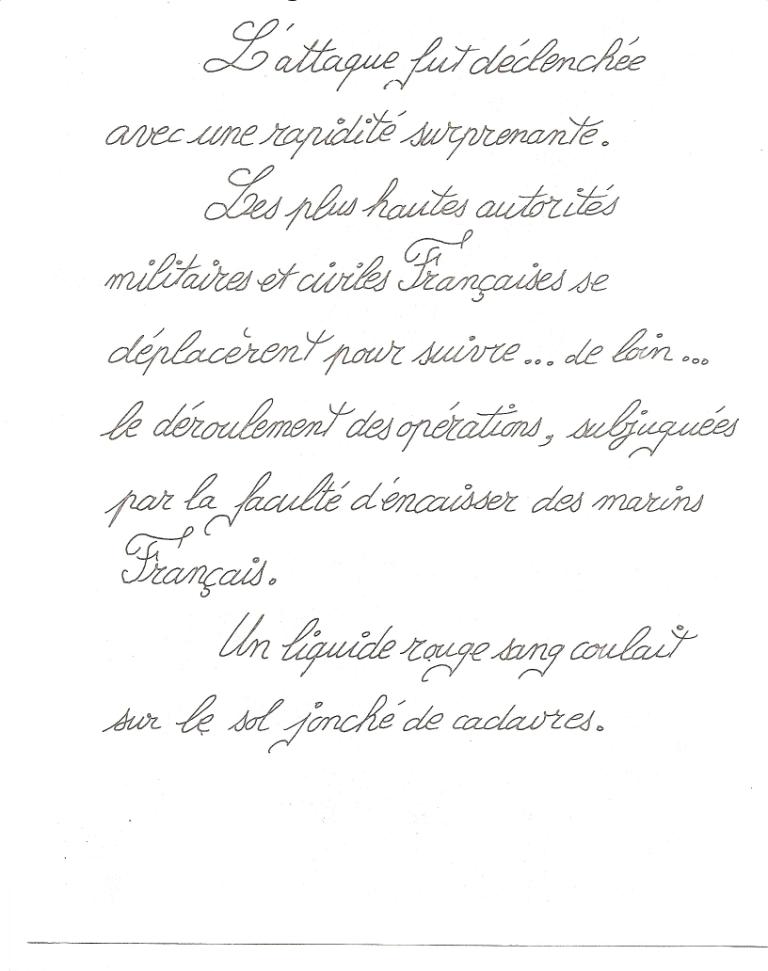 L'attaque fut déclenchée
avec une rapidité surprenante.
Les plus hautes autorités
militaires et civiles Françaises se
déplacèrent pour suivre... de loin...
le déroulement des opérations, subjuguées
par la faculté d'encaisser des marins
Français.
Un liquide rouge sang coulait
sur le sol jonché de cadavres.